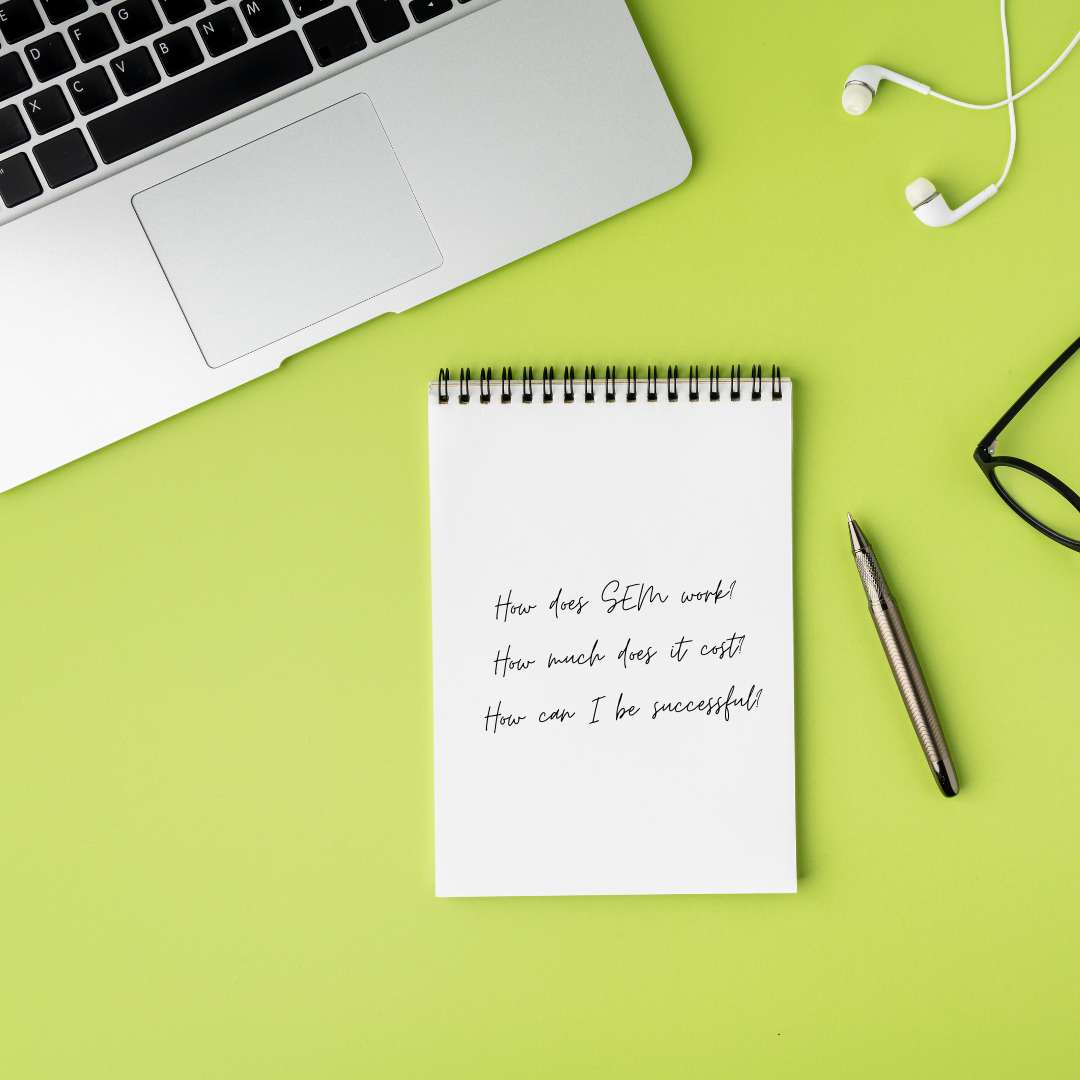 E G M
D F B N
X C V
How does SEM work?
How much does it cost?
How can I be successful?